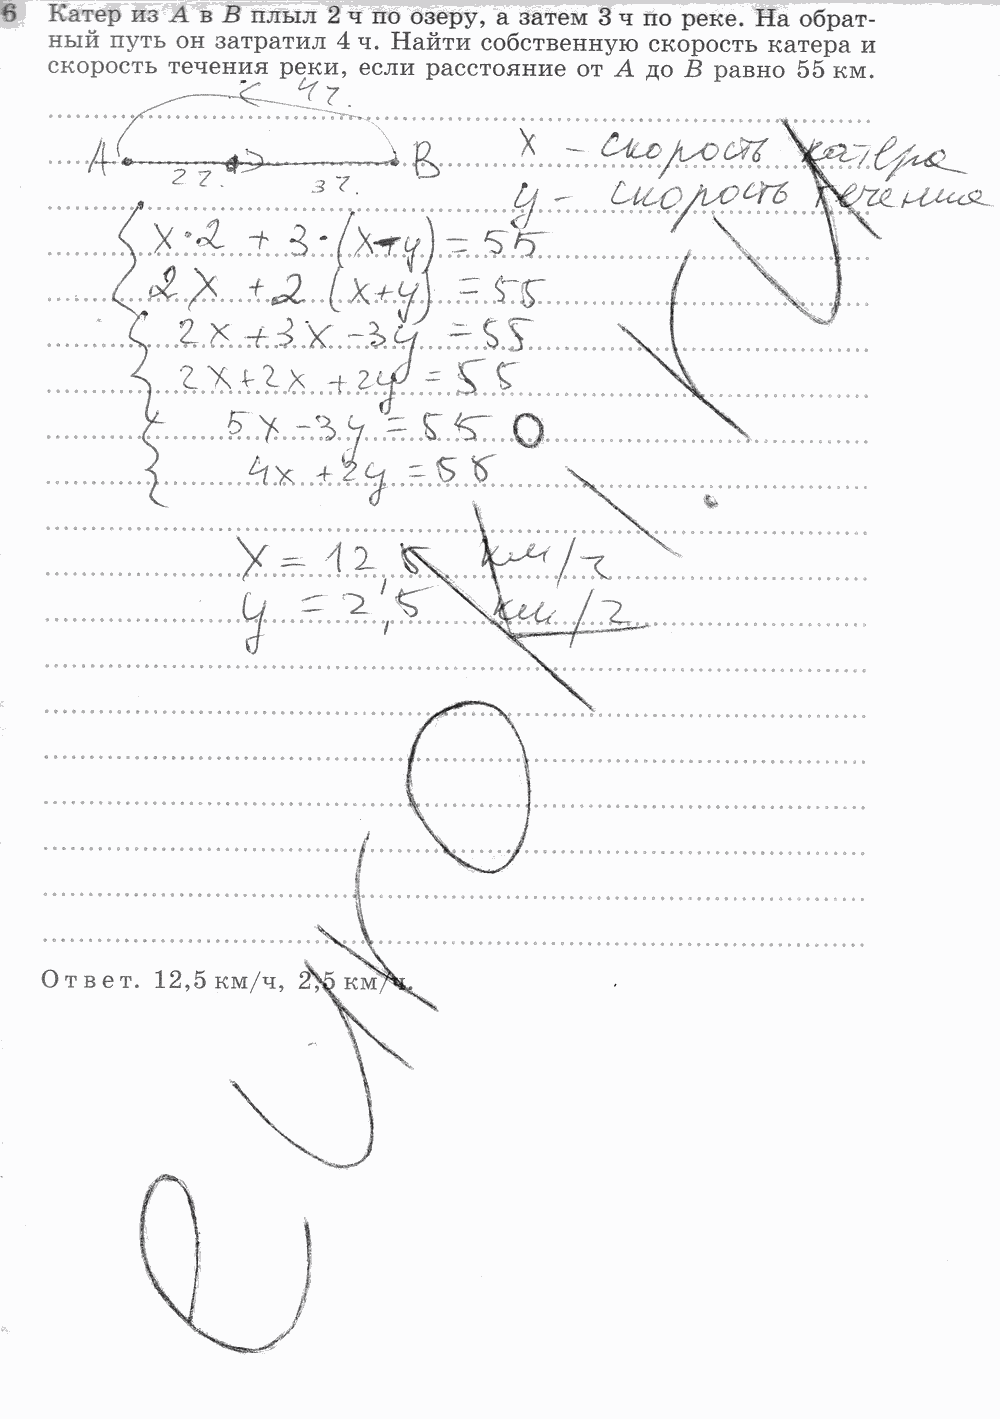 6 Катер из A в B плыл 2 ч по озеру, а затем 3 ч по реке. На обрат-
ный путь он затратил 4 ч. Найти собственную скорость катера и
скорость течения реки, если расстояние от A до B равно 55 км.
4 ч.
A B
2 ч. 3 ч.
x - скорость катера
y - скорость течения
x · 2 + 3 · (x - y) = 55
2x + 2 (x+y) = 55
2x + 3x - 3y = 55
2x + 2x + 2y = 55
5x - 3y = 55
4x + 2y = 55
x = 12,5 км/ч
y = 2,5 км/ч
Ответ. 12,5 км/ч, 2,5 км/ч.
eurokI.ru